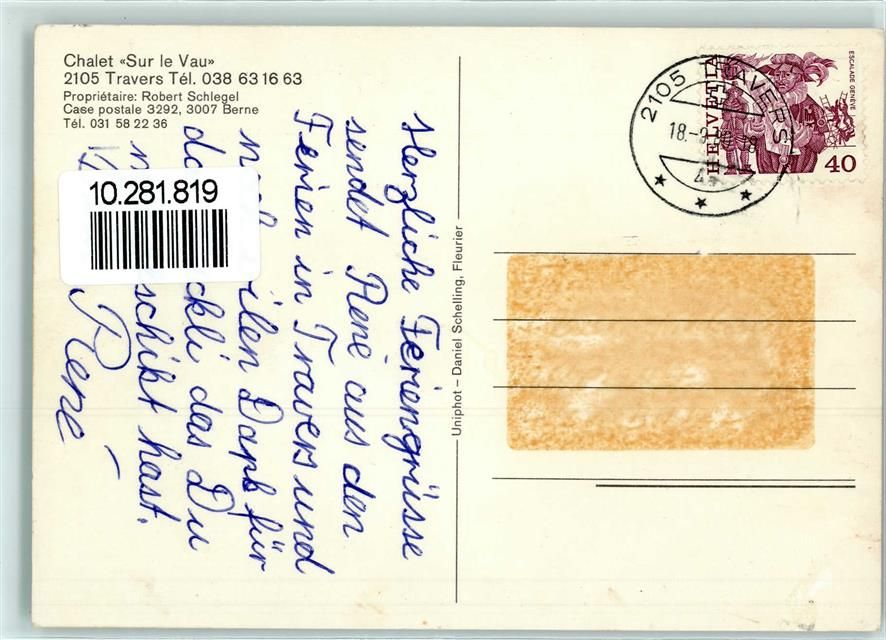 Chalet «Sur le Vau»
2105 Travers Tél. 038 63 16 63
Propriétaire: Robert Schlegel
Case postale 3292, 3007 Berne
Tél. 031 58 22 36
10.281.819
Herzliche Feriengrüsse
sendet René aus den
Ferien in Travers und
für
das Du
hast.
René
Uniphot – Daniel Schelling, Fleurier
2105 TRAVERS
HELVETIA
ESCALADE GENÈVE
40